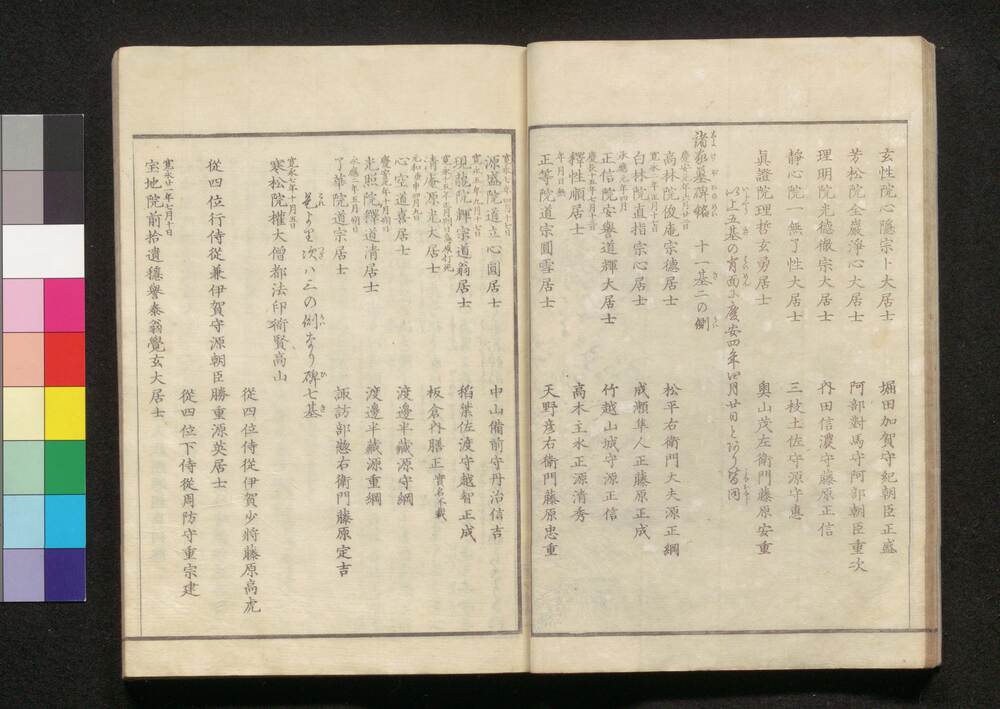 玄性院心隠宗卜大居士　堀田加賀守紀朝臣正盛
芳松院全巌淨心大居士　阿部對馬守阿部朝臣重次
理明院光徳徹宗大居士　内田信濃守藤原正信
靜心院一無了性大居士　三枝土佐守源守惠
眞證院理哲玄勇居士　奥山茂左衛門藤原安重
以上五基の背面に慶安四年四月廿日と
諸家墓碑銘　十一基二の側
高林院俊庵宗德居士　松平右衛門大夫源正綱
寛永二年正月十七日
白林院直指宗心居士　成瀬隼人正藤原正成
承應元年四月
正信院安譽道輝大居士　竹越山城守源正信
釋性順居士　高木主水正源清秀
年月日無
正等院道宗圓雪居士　天野彦右衛門藤原忠重
源盛院道立心圓居士　中山備前守丹治信吉
現龍院輝宗道翁居士　稻葉佐渡守越智正成
清庵原光大居士　板倉内膳正實名不載
心空道喜居士　渡邊半藏源守綱
光照院釋道清居士　渡邊半藏源重綱
承應二年五月朔日
了華院道宗居士　諏訪部惣右衛門藤原定吉
是より次ハ三の側なり碑七基
寛永七年十月五日
寒松院權大僧都法印衜賢高山
從四位侍從伊賀少將藤原高虎
從四位行侍從兼伊賀守源朝臣勝重源英居士
從四位下侍從周防守重宗建
寛永廿一年七月十日
宝地院前拾遺穩譽泰翁覺玄大居士